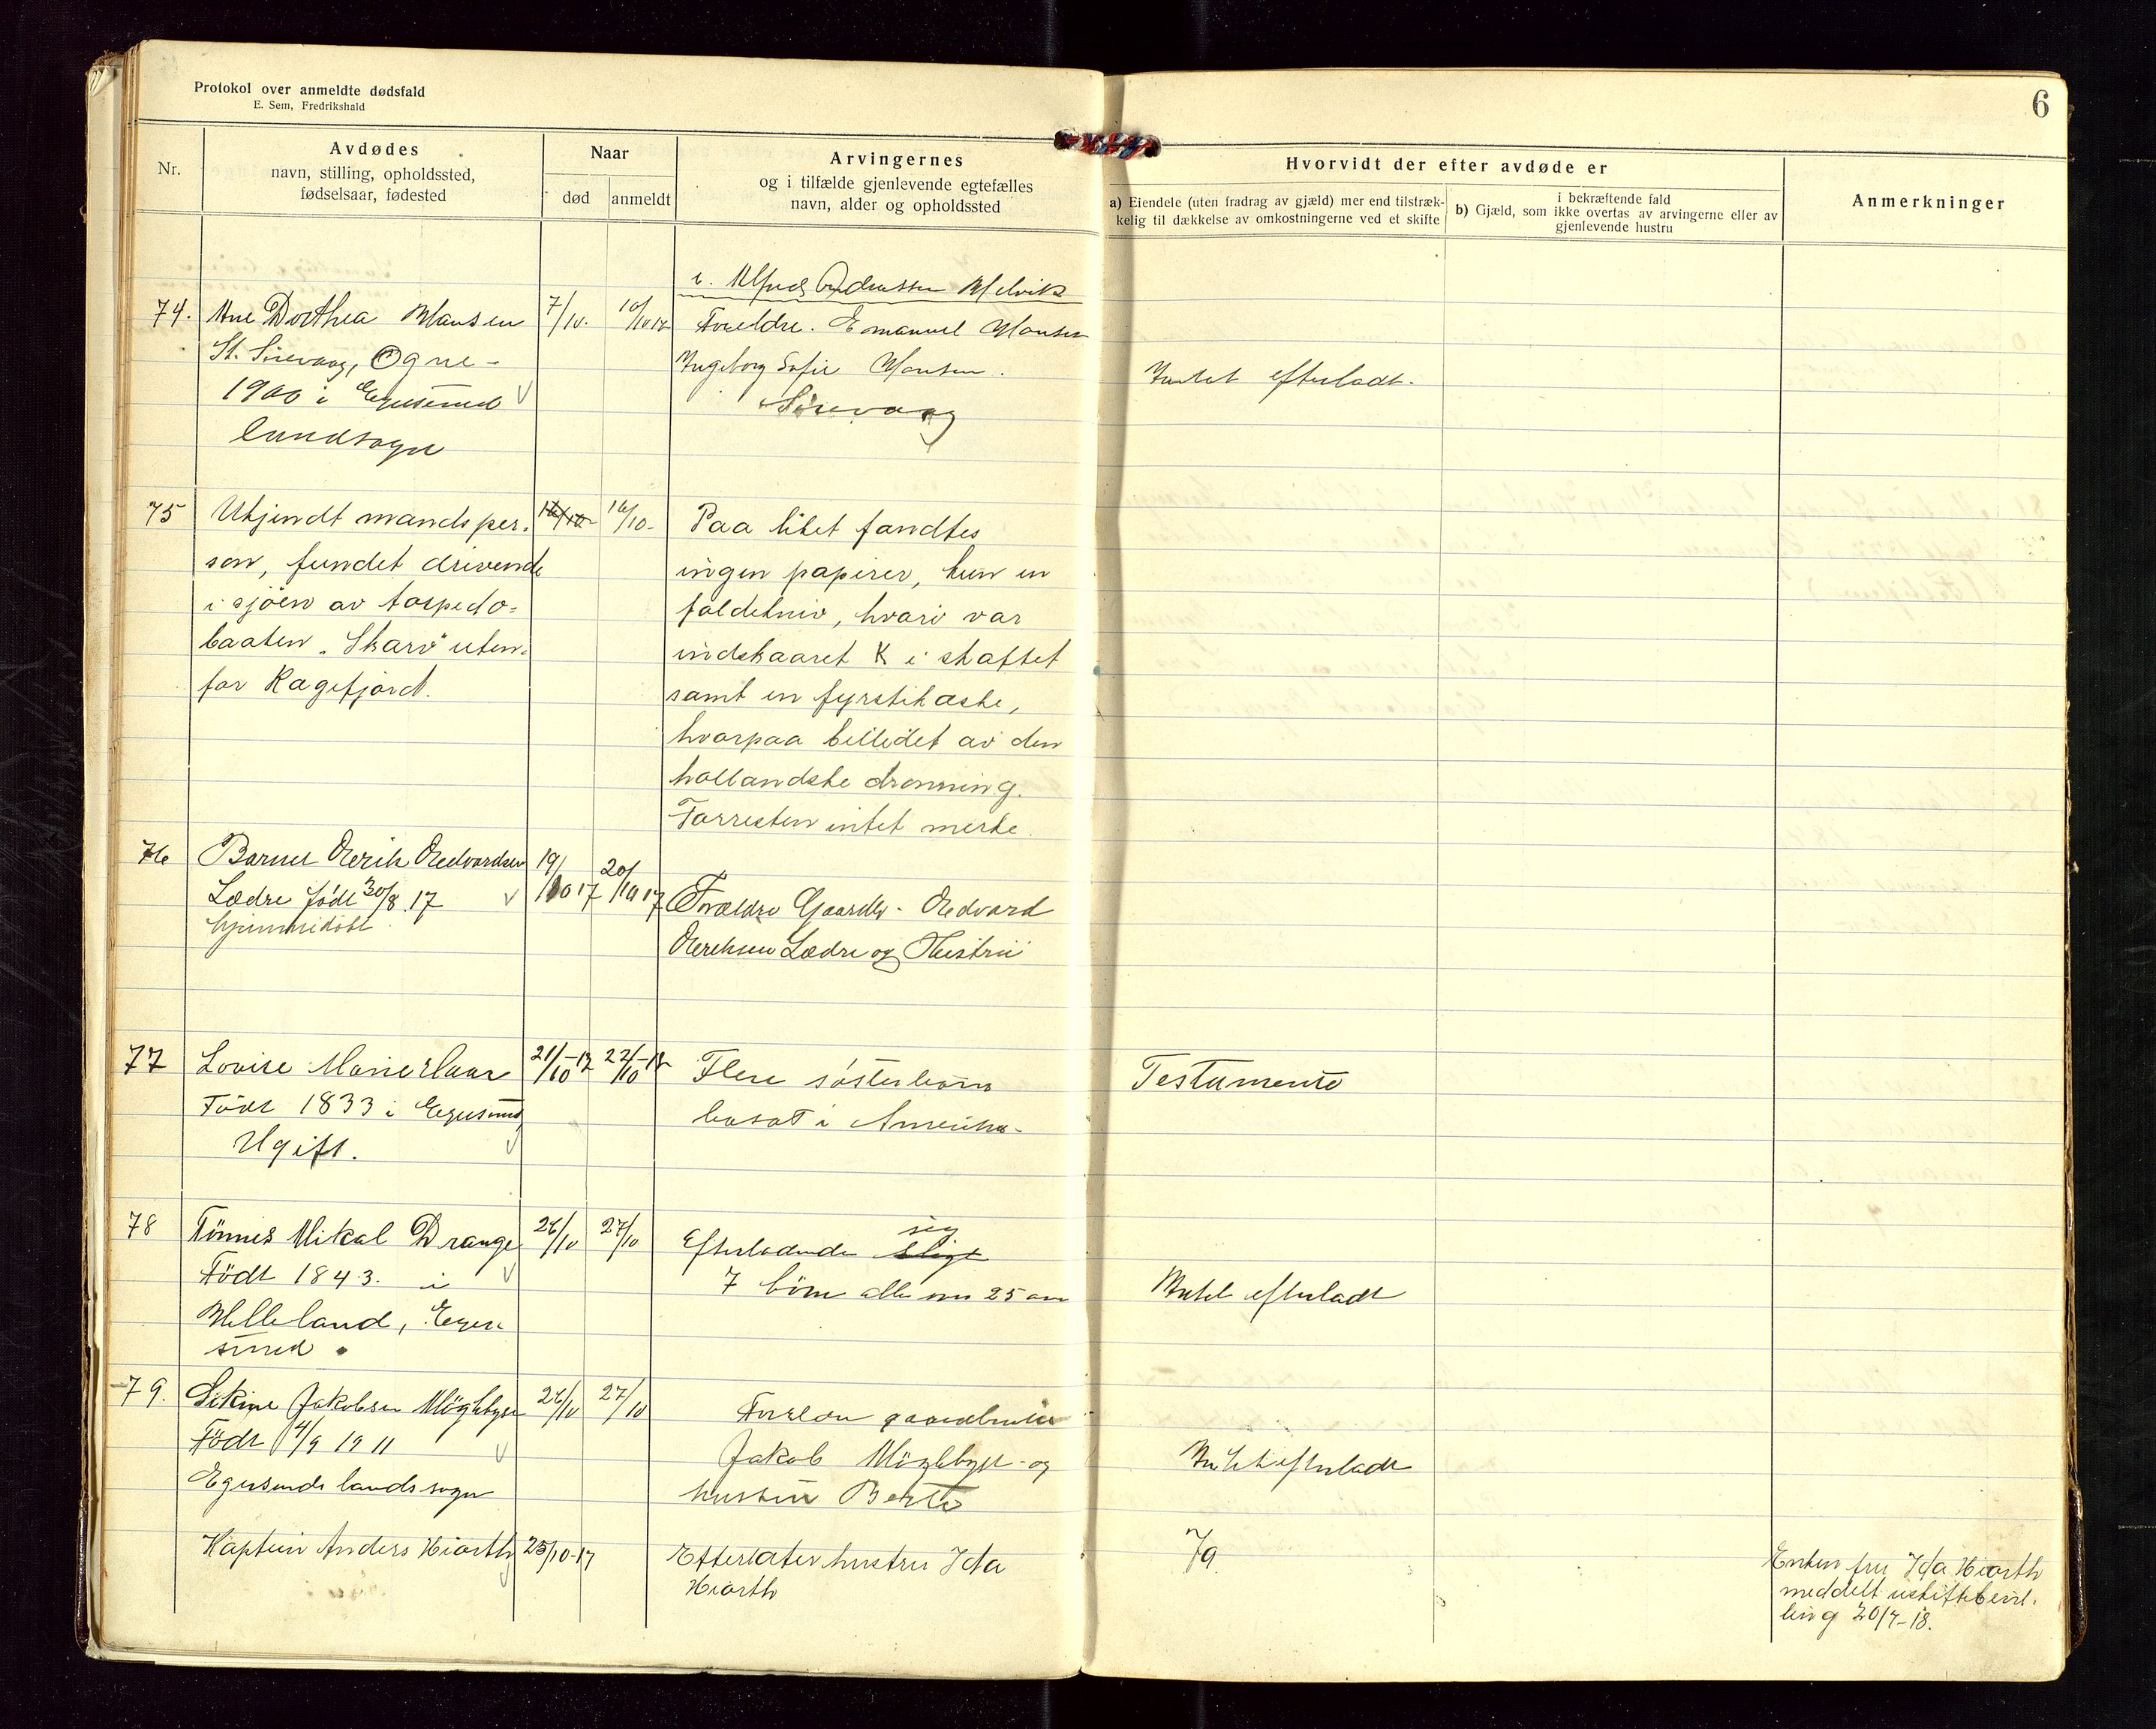 Protokol over anmeldte dødsfald
E. Sem, Fredrikshald
6
Nr.
Avdødes
navn, stilling, opholdssted,
fødselsaar, fødested
Naar
død
anmeldt
Arvingernes
og i tilfælde gjenlevende egtefælles
navn, alder og opholdssted
Hvorvidt der efter avdøde er
a) Eiendele (uten fradrag av gjæld) mer end tilstræk-
kelig til dækkelse av omkostningerne ved et skifte
i bekræftende fald
b) Gjæld, som ikke overtas av arvingerne eller av
gjenlevende hustru
Anmerkninger
74.
Ane Dorthea Hansen
St. Sirevaag, Ogne -
1900 i Egersund
landsogn
7/10.
10/10 17
Foreldre. Emanuel Hansen
Ingeborg Sofie Hansen.
Sirevaag
Intet efterladt.
75
Ukjendt mandsper-
son, fundet drivende
i sjøen av torpedo-
baaten "Skarv" uten-
for Ragefjord.
16/10
16/10-
Paa liket fandtes
ingen papirer, kun en
foldekniv, hvari var
indskaaret K i skaftet
samt en fyrstikæske,
hvorpaa billedet av den
hollandske dronning.
Forresten intet merke.
76
Barnet Eerik Eedvardsen
Lædre født 30/8.17
hjemmedøbt
19/10 17
20/10 17
Foreldre Gaardbr. Eedvard
Eereksen Lædre og Hustru
77
Lovise Marie
Født 1833 i Egersund
Ugift.
21/10-17
22/10-17
Flere søsterbørn
bosat i Amerika-
Testamente
78
Tönnes Mikal Drange
Født 1843. i
Helleland, Eger
sund.
26/10
27/10
Efterladende sig
7 börn alle over 25 aar
Intet efterladt
79.
Sikine Jakobsen Möglebyst
Født 4/9 1911
Egersunds landssogn
26/10
27/10
Foreldre gaardbruker
Jakob Möglebyst og
hustru Berta
Intet efterladt
Kaptein Anders Hiorth
25/10-17
Efterlater hustru Ida
Hiorth
Ja.
Enken fru Ida Hiorth
meddelt uskiftebevil-
ling 20/4-18.